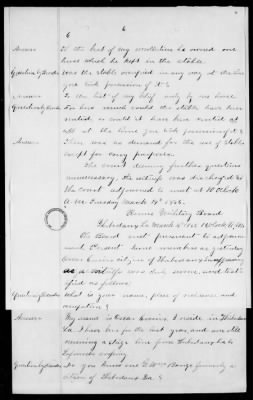 6
6
Answer To the best of my recollection he owned one
horse which he kept in the stable.
Question by Recorder Was the stable occupied in any way at the time
you took possession of it?
Answer To the best of my belief only by one horse
Question by Recorder For how much could the stable have been
rented, or could it have been rented at
all at the time you took possession of it?
Answer There was no demand for the use of stables
except for cavalry purposes.
The court deeming further questions
unnecessary, the witness was discharged &
the court adjourned to meet at 10 O'Clock
A.M. Tuesday March
Military Board
Thibodaux La March
The Board met pursuant to adjourn
ment. Present same members as yesterday
citizen of Thibodaux
as a witness was duly sworn, and testi
fied as follows
Question by Recorder What is your name, place of residence and
occupation?
Answer My name is Oscar I reside in Thibodaux
La. I have been for the last year, and am still
running a stage line from Thibodaux La to
Question by Recorder Do you know one G. formerly a
citizen of Thibodaux La?